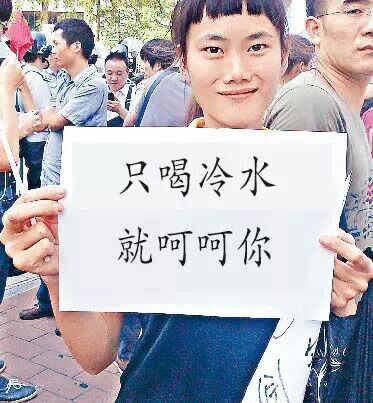 只喝冷水
就呵呵你